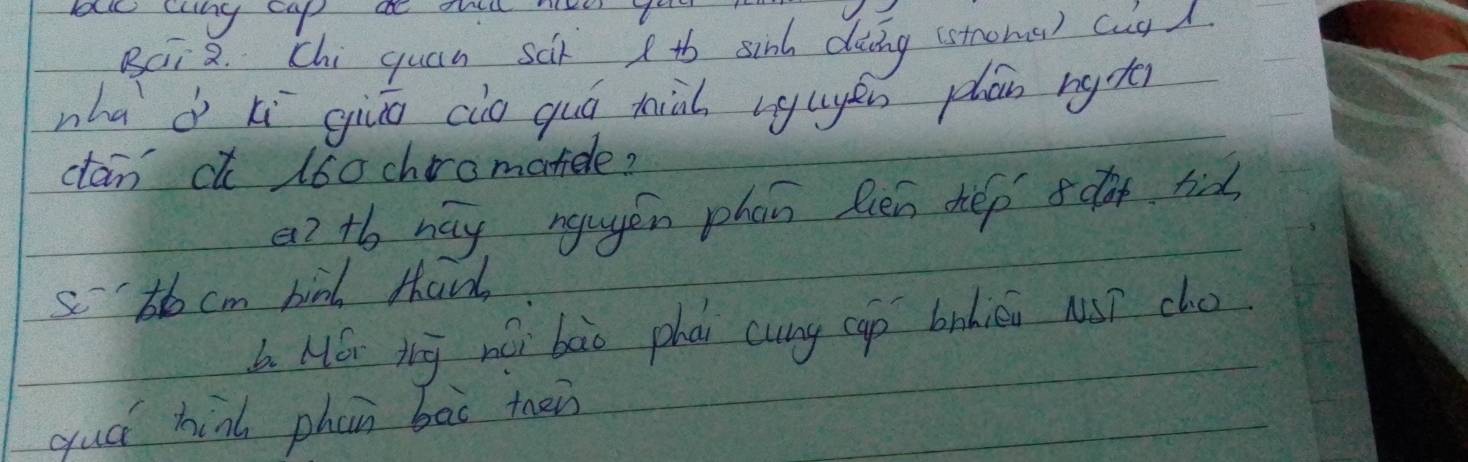 bào cung cấp để thực hiện quá
Bài 2. Chi quan sát 1 tb sinh dưỡng (stroma) của 1
nhà ở kì giữa của quá trình nguyên phân ngta
đến đc 160 chromatide?
a? tb này nguyên phân liên tiếp 8 đợt. tính
số tb cm hình thành.
b. Môi trg nội bào phải cung cấp bnhiêu NST cho
quá trình phân bào trên